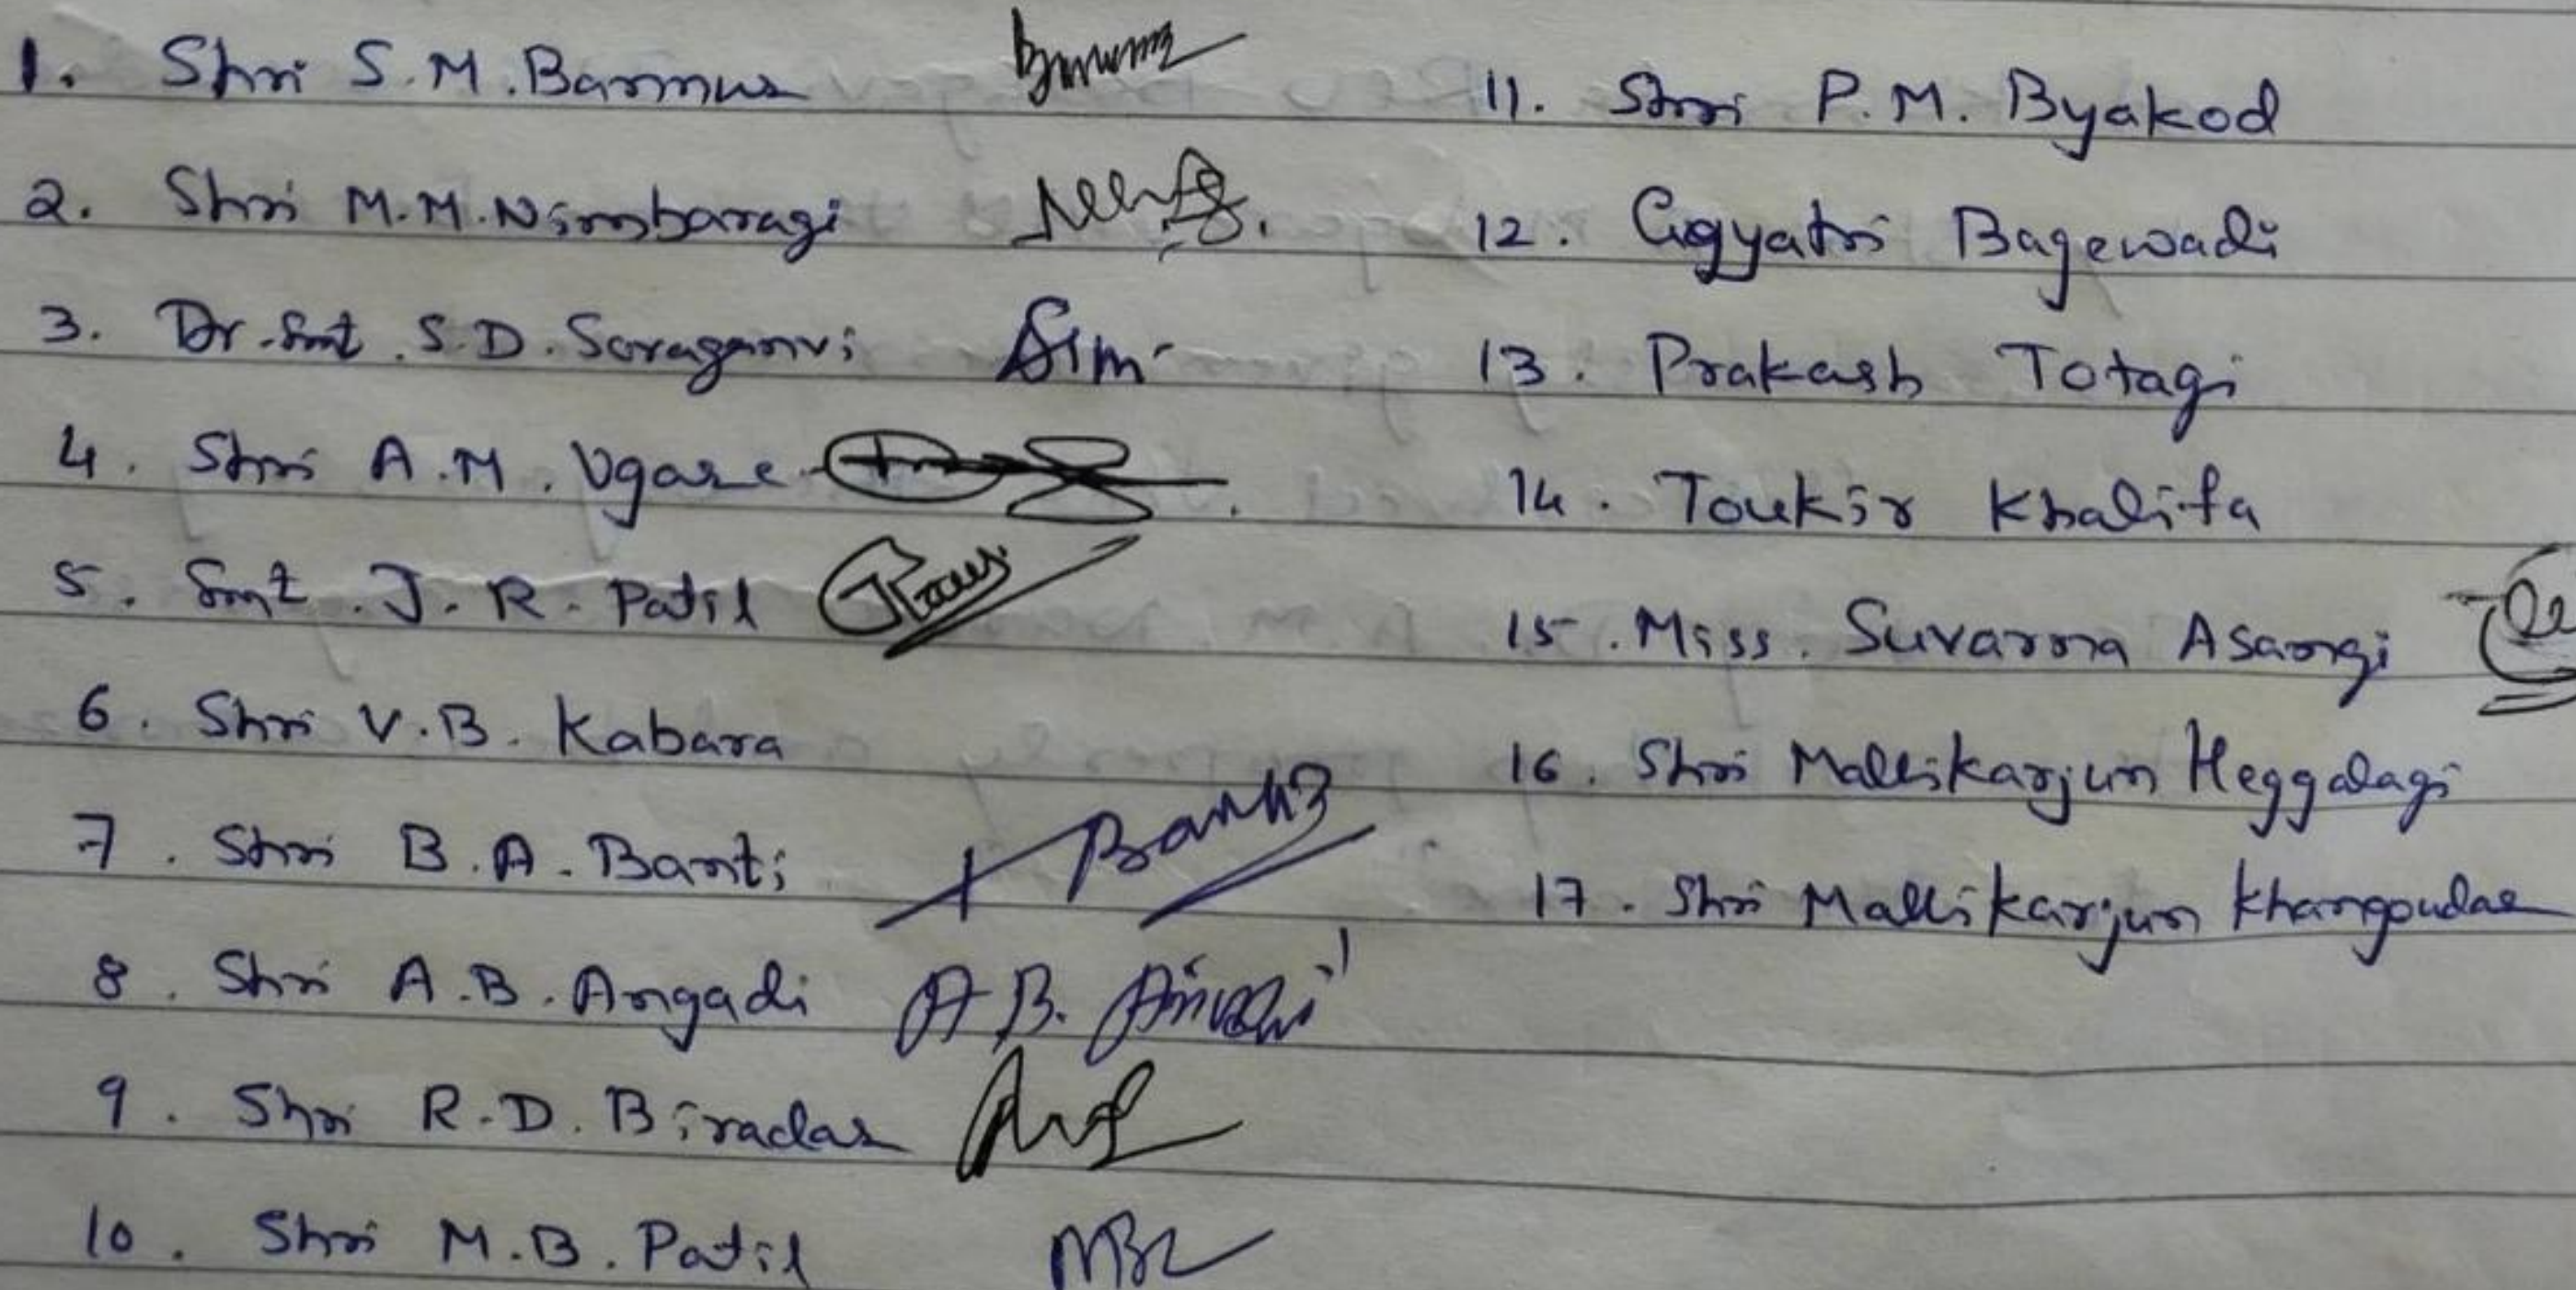 1. Shri S.M. Bannur
2. Shri M.M. Nimbaragi
3. Dr. Smt. S.D. Soraganvi
4. Shri A.M. Ugare
5. Smt. J.R. Patil
6. Shri V.B. Kabara
7. Shri B.A. Banti
8. Shri A.B. Angadi
9. Shri R.D. Biradar
10. Shri M.B. Patil
11. Shri P.M. Byakod
12. Gayatri Bagewadi
13. Prakash Totagi
14. Toukir Khalifa
15. Miss. Suvarna Asangi
16. Shri Mallikarjun Heggalagi
17. Shri Mallikarjun Khangoudar